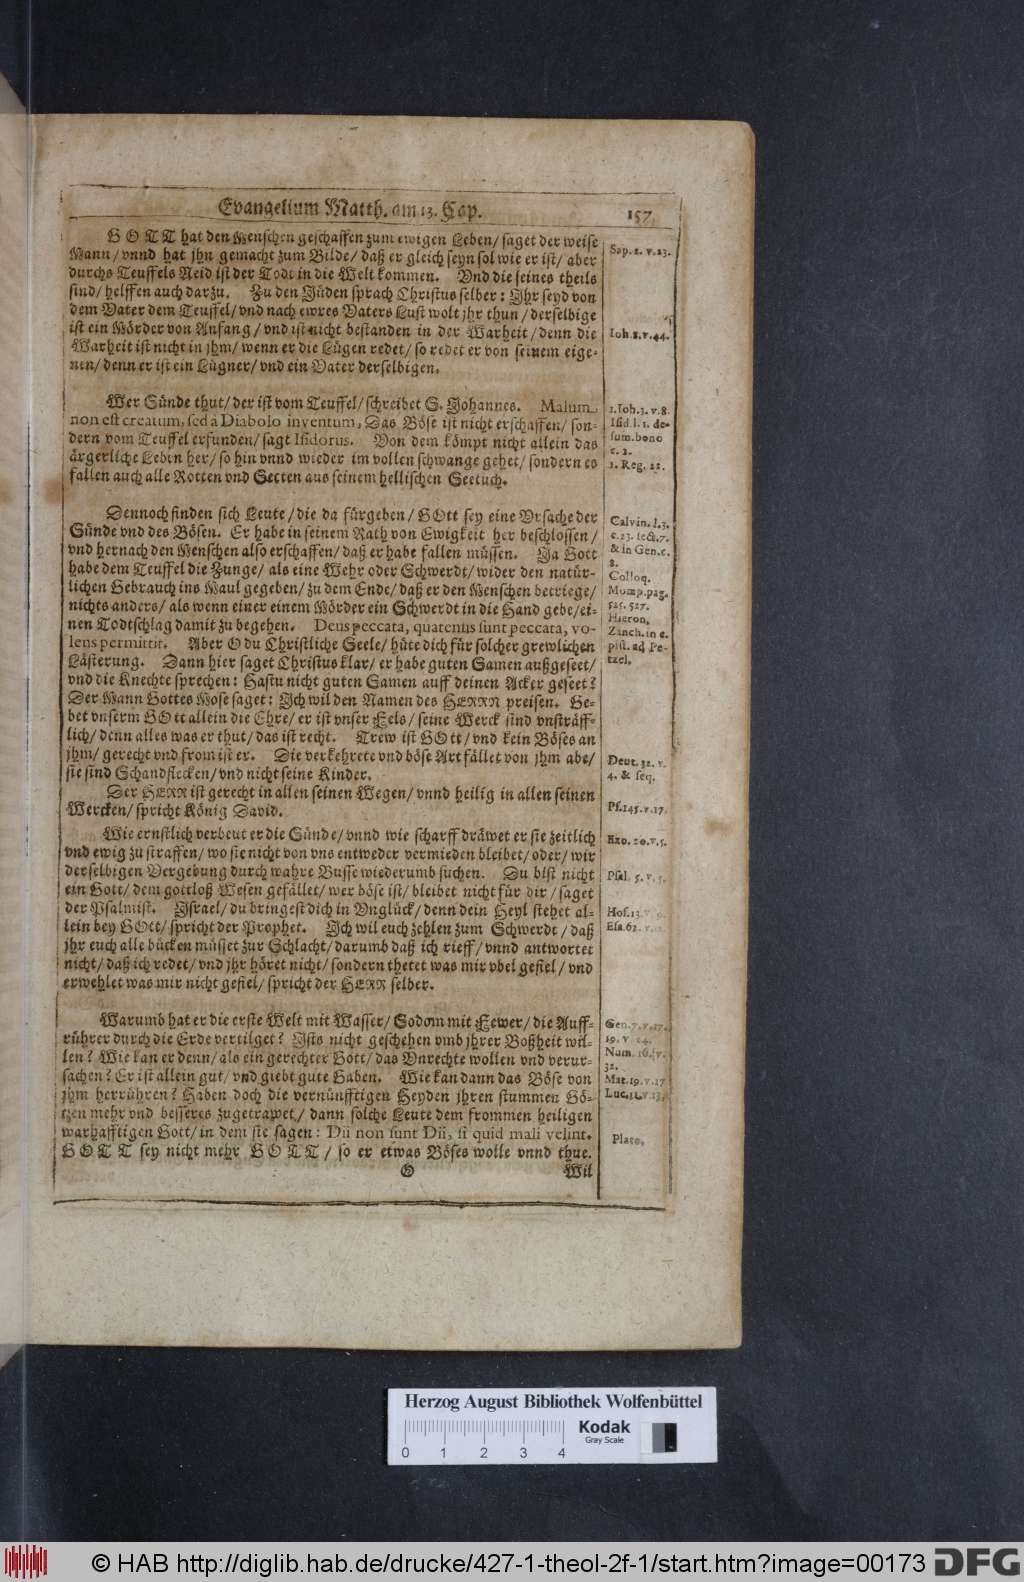 Evangelium Matth. am 13. Cap.
157
GOTT hat den Menschen geschaffen zum ewigen Leben/ saget der weise
Mann/ vnnd hat jhn gemacht zum Bilde/ daß er gleich seyn sol wie er ist/ aber
durchs Teuffels Neid ist der Todt in die Welt kommen. Vnd die seines theils
sind/ helffen auch darzu. Zu den Jüden sprach Christus selber: Jhr seyd von
dem Vater dem Teuffel/ vnd nach ewres Vaters Lust wolt jhr thun/ derselbige
ist ein Mörder von Anfang/ vnd ist nicht bestanden in der Warheit/ denn die
Warheit ist nicht in jhm/ wenn er die Lügen redet/ so redet er von seinem eige-
nen/ denn er ist ein Lügner/ vnd ein Vater derselbigen.
Wer Sünde thut/ der ist vom Teuffel/ schreibet S. Johannes. Malum
non est creatum, sed à Diabolo inventum, Das Böse ist nicht erschaffen/ son-
dern vom Teuffel erfunden/ sagt Isidorus. Von dem kömpt nicht allein das
ärgerliche Leben her/ so hin vnnd wieder im vollen schwange gehet/ sondern es
fallen auch alle Rotten vnd Secten aus seinem hellischen Seetuch.
Dennoch finden sich Leute/ die da fürgeben/ GOtt sey eine Vrsache der
Sünde vnd des Bösen. Er habe in seinem Rath von Ewigkeit her beschlossen/
vnd hernach den Menschen also erschaffen/ daß er habe fallen müssen. Ja Gott
habe dem Teuffel die Zunge/ als eine Wehr oder Schwerdt/ wider den natür-
lichen Gebrauch ins Maul gegeben/ zu dem Ende/ daß er den Menschen betriege/
nichts anders/ als wenn einer einem Mörder ein Schwerdt in die Hand gebe/ ei-
nen Todtschlag damit zu begehen. Deus peccata, quatenus sunt peccata, vo-
lens permittit. Aber O du Christliche Seele/ hüte dich für solcher grewlichen
Lästerung. Dann hier saget Christus klar/ er habe guten Samen außgeseet/
vnd die Knechte sprechen: Hastu nicht guten Samen auff deinen Acker geseet?
Der Mann Gottes Mose saget: Jch wil den Namen des HERRN preisen. Ge-
bet vnserm GOtt allein die Ehre/ er ist vnser Fels/ seine Werck sind vnsträff-
lich/ denn alles was er thut/ das ist recht. Trew ist GOtt/ vnd kein Böses an
jhm/ gerecht vnd from ist er. Die verkehrete vnd böse Art fället von jhm abe/
sie sind Schandflecken/ vnd nicht seine Kinder.
Der HERR ist gerecht in allen seinen Wegen/ vnnd heilig in allen seinen
Wercken/ spricht König David.
Wie ernstlich verbeut er die Sünde/ vnnd wie scharff dräwet er sie zeitlich
vnd ewig zu straffen/ wo sie nicht von vns entweder vermieden bleibet/ oder/ wir
derselbigen Vergebung durch wahre Busse wiederumb suchen. Du bist nicht
ein Gott/ dem gottloß Wesen gefället/ wer böse ist/ bleibet nicht für dir/ saget
der Psalmist. Jsrael/ du bringest dich in Vnglück/ denn dein Heyl stehet al-
lein bey GOtt/ spricht der Prophet. Jch wil euch zehlen zum Schwerdt/ daß
jhr euch alle bücken müsset zur Schlacht/ darumb daß ich rieff/ vnnd antwortet
nicht/ daß ich redet/ vnd jhr höret nicht/ sondern thetet was mir vbel gefiel/ vnd
erwehlet was mir nicht gefiel/ spricht der HERR selber.
Warumb hat er die erste Welt mit Wasser/ Sodom mit Fewer/ die Auff-
rührer durch die Erde vertilget? Jsts nicht geschehen vmb jhrer Boßheit wil-
len? Wie kan er denn/ als ein gerechter Gott/ das Vnrechte wollen vnd verur-
sachen? Er ist allein gut/ vnd giebt gute Gaben. Wie kan dann das Böse von
jhm herrühren? Haben doch die vernünfftigen Heyden jhren stummen Gö-
tzen mehr vnd besseres zugetrawet/ dann solche Leute dem frommen heiligen
warhafftigen Gott/ in dem sie sagen: Dii non sunt Dii, si quid mali velint.
GOTT sey nicht mehr GOTT/ so er etwas Böses wolle vnnd thue.
O Wil
Sap. 2. v. 23.
Ioh. 8. v. 44.
1. Ioh. 3. v. 8.
Isid. l. 1. de
sum. bono
c. 2.
1. Reg. 22.
Calvin. l. 3.
c. 23. sect. 7.
& in Gen. c.
Colloq.
Momp. pag.
525. 527.
Hieron.
Zanch. in e-
pist. ad Pe-
tzel.
Deut. 32. v.
4. & seq.
Ps. 145. v. 17.
Exo. 20. v. 5.
Psal. 5. v. 5.
Hos. 13. v. 9.
Esa. 65. v.
Gen. 7. v. 17.
19. v 24.
Num. 16. v.
32.
Mat. 19. v. 17
Luc. 11. v. 13.
Plato.
Herzog August Bibliothek Wolfenbüttel
Kodak
Gray Scale
0 1 2 3 4
© HAB http://diglib.hab.de/drucke/427-1-theol-2f-1/start.htm?image=00173
DFG